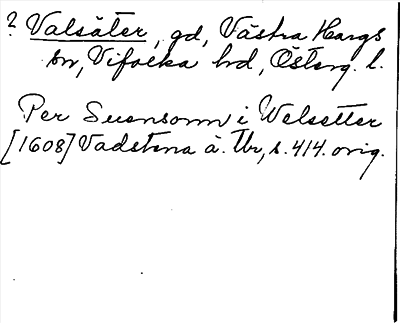 ? Valsäter, gd, Västra Hargs
sn, Vifolka hd, Österg. l.
Per Suensonn i Welsetter
[1608] Vadstena ä. Tb, s. 414. orig.